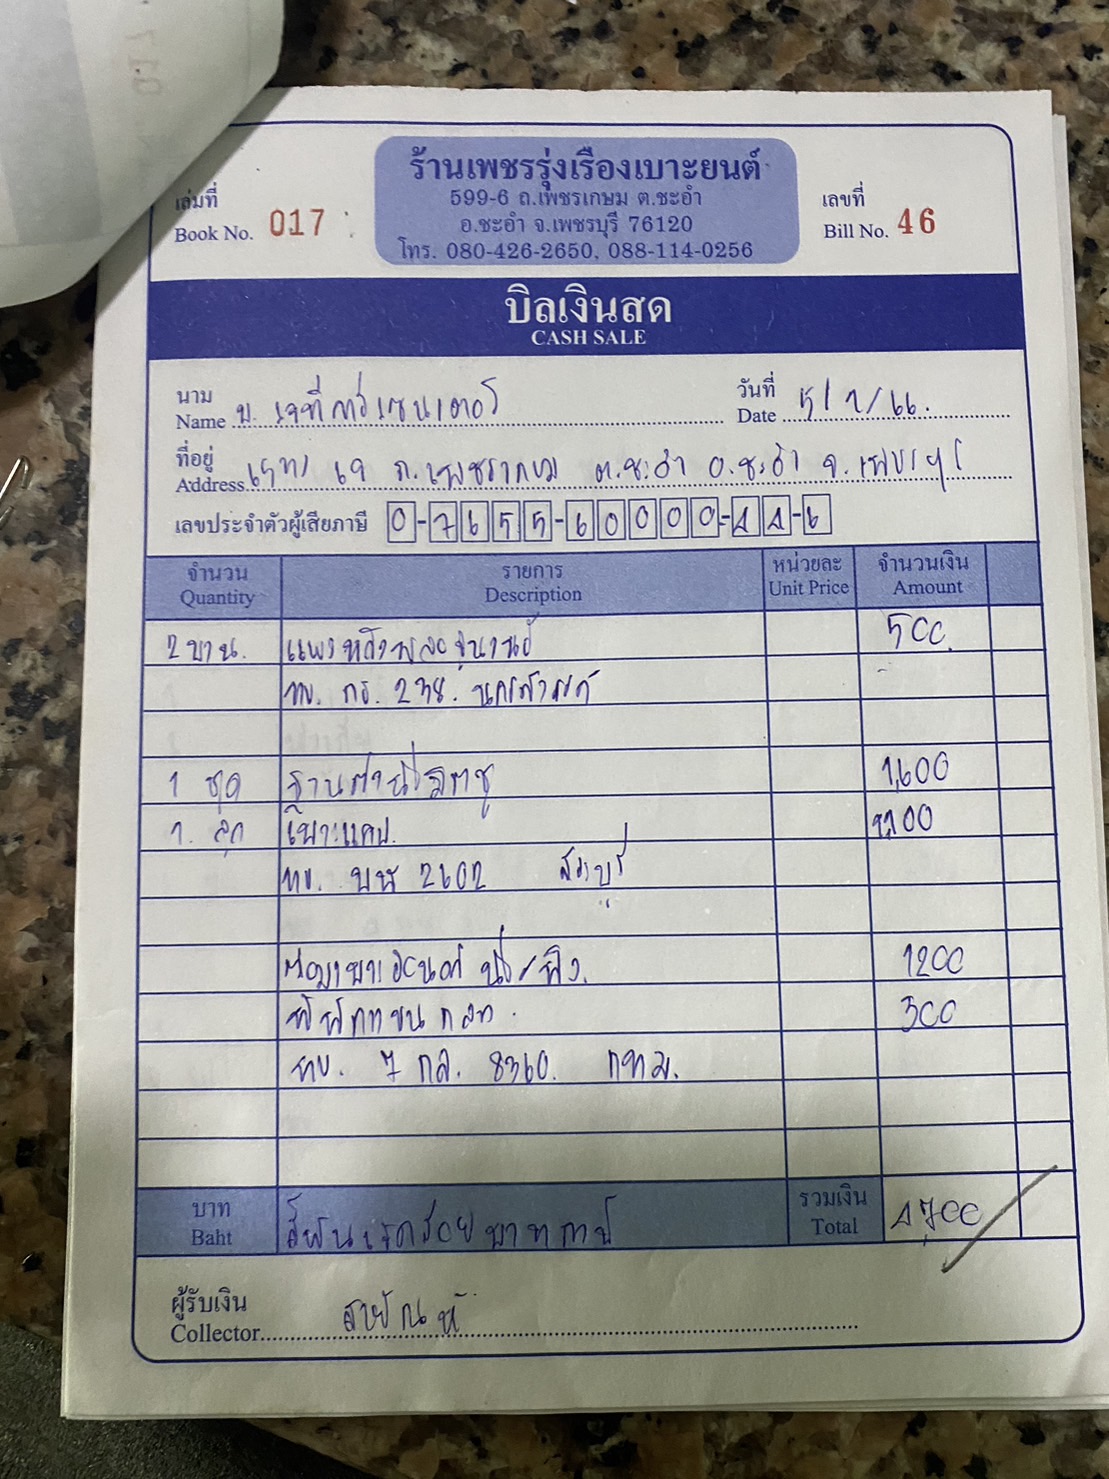 ร้านเพชรรุ่งเรืองเบาะยนต์
599-6 ถ.เพชรเกษม ต.ชะอำ
อ.ชะอำ จ.เพชรบุรี 76120
โทร. 080-426-2650, 088-114-0256
เล่มที่
Book No. 017
เลขที่
Bill No. 46
บิลเงินสด
CASH SALE
นาม
Name บ. เจที คาร์เซนเตอร์
วันที่
Date 5/7/66.
ที่อยู่
Address ถ.เพชรเกษม ต.ชะอำ อ.ชะอำ จ.เพชรบุรี
เลขประจำตัวผู้เสียภาษี 0-7655-60000-11-6
จำนวน รายการ หน่วยละ จำนวนเงิน
Quantity Description Unit Price Amount
2 บาน. แผงหลัง 500
ทบ. กธ. 238. นครสวรรค์
1 ชุด ฐาน 1,600
1. ลูก เบาะแคป. 1,100
ทบ. 2602 สระบุรี
1200
300
ทบ. 7 กล. 8360. กทม.
บาท
Baht สี่พันเจ็ดร้อยบาทถ้วน
รวมเงิน
Total 4,700
ผู้รับเงิน
Collector